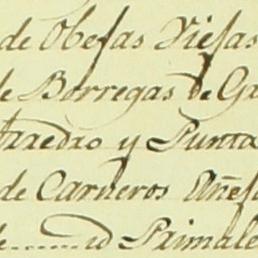 de Obejas Viejas
de Borregas de Ga
traedio y Punta
de Carneros Añejo
de......id Primale